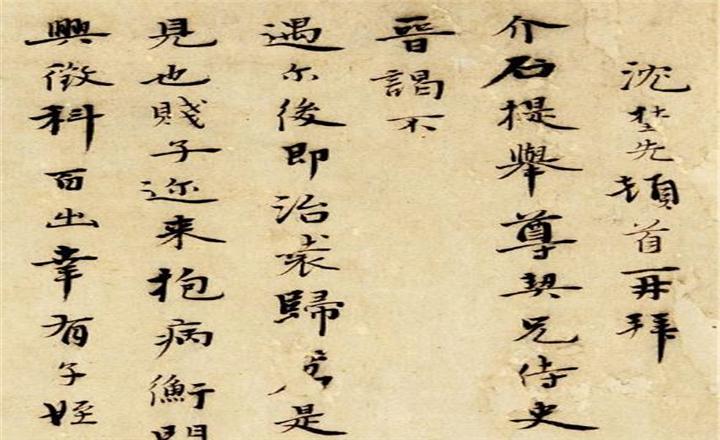 沈埜先頓首再拜
介石提舉尊契兄侍史
晉謁不
遇尒後即治裝歸是
見也賤子迩来抱病衡門
興徵科百出幸有子姪